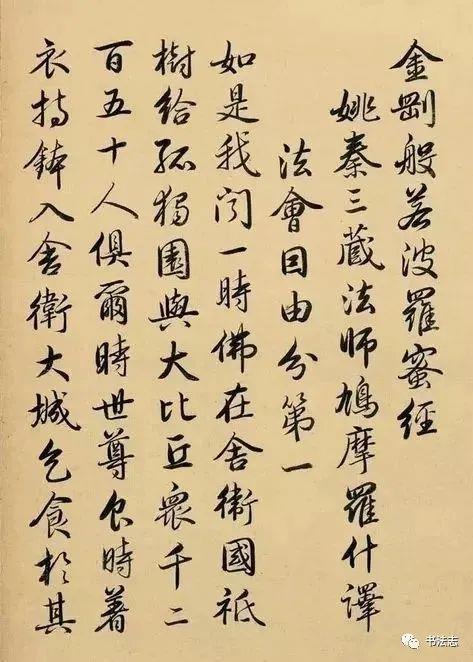 金剛般若波羅蜜經
姚秦三藏法師鳩摩羅什譯
法會因由分第一
如是我聞一時佛在舍衛國祇
樹給孤獨園與大比丘眾千二
百五十人俱爾時世尊食時著
衣持鉢入舍衛大城乞食於其
书法志